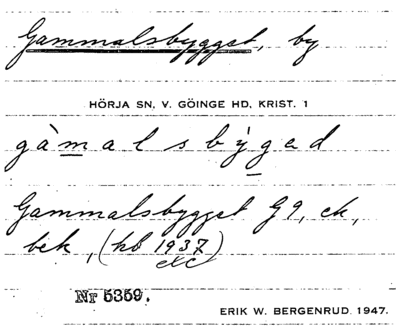 Gammalsbygget, by
HÖRJA SN, V. GÖINGE HD, KRIST. 1
gàmalsbýgad
Gammalsbygget G9, ek,
bek, (hb 1937)
etc
Nr 5359.
ERIK W. BERGENRUD. 1947.